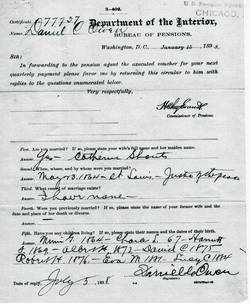 3-402.
U.S. PENSION AGENCY
CHICAGO.
Certificate 
Department of the Interior,
Name, Daniel C Owen
BUREAU OF PENSIONS,
Washington, D. C., January 15 1898.
SIR:
In forwarding to the pension agent the executed voucher for your next
quarterly payment please favor me by returning this circular to him with
replies to the questions enumerated below.
Very respectfully,
H Clay Evans
Commissioner of Pensions.
First. Are you married? If so, please state your wife's full name and her maiden name.
Yes — Catherine
Second. When, where, and by whom were you married?
1861 St Louis — Justice of the peace
Third. What record of marriage exists?
I have none —
Fourth. Were you previously married? If so, please state the name of your former wife and the
date and place of her death or divorce.
Fifth. Have you any children living? If so, please state their names and the dates of their birth.
1864 — 67 —
1872 — Daniel C 1875
Robert H. 1876 — Eva M. 1881 — Lucy C 1884
Daniel C Owen
Date of reply, July 5, 1898